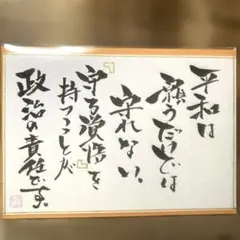 平和は
願うだけでは
守れない、
『守る覚悟』を
持つことが
政治の責任です。